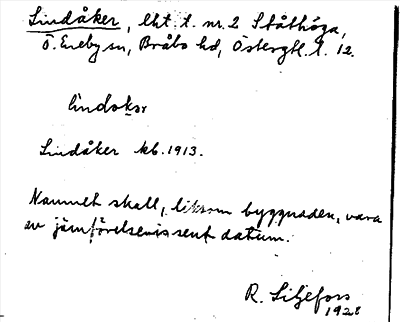 Lindåker, lht. t. nr. 2 Ståthöga,
Ö. Eneby sn, Bråbo hd, Östergtl. l. 12.
lindokər
Lindåker kb. 1913.
Namnet skall, liksom byggnaden, vara
av jämförelsevis sent datum.
R. Liljefors
1928